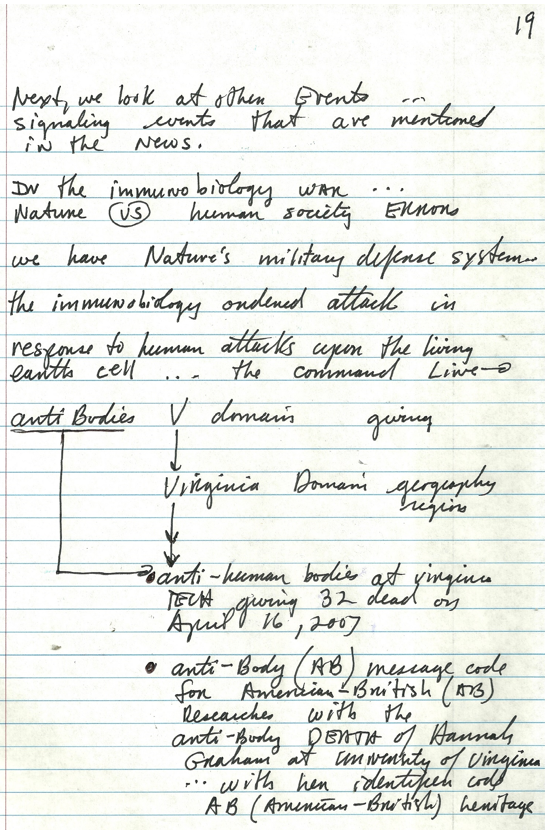 19
Next, we look at other Events ...
signaling events that are mentioned
in the News.
In the immunobiology war ...
Nature VS human society Errors
we have Nature's military defense system
the immunobiology ordered attack in
response to human attacks upon the living
earth cell .... the command Line→
anti Bodies V domain giving
Virginia Domain geography
region
• anti-human bodies at virginia
TECH giving 32 dead on
April 16, 2007
• anti-Body (AB) message code
for American-British (AB)
Researches with the
anti-Body DEATH of Hannah
Graham at University of Virginia
... with her identifier code
AB (American-British) heritage